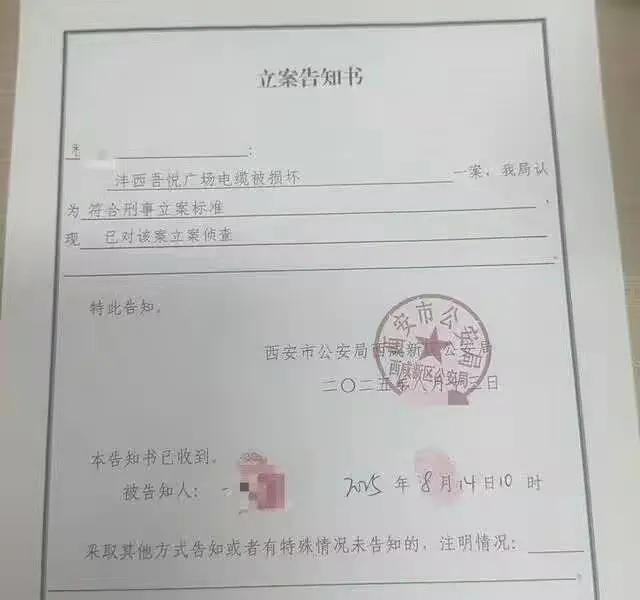 立案告知书
:
沣西吾悦广场电缆被损坏 一案,我局认
为 符合刑事立案标准 ,
现 已对该案立案侦查
。
特此告知。
西安市公安局
西咸新区公安局
西安市公安局西咸新区公安局
二〇二五年八月 三日
本告知书已收到。
被告知人: 2025 年 8 月 14 日 10 时
采取其他方式告知或者有特殊情况未告知的,注明情况:
。